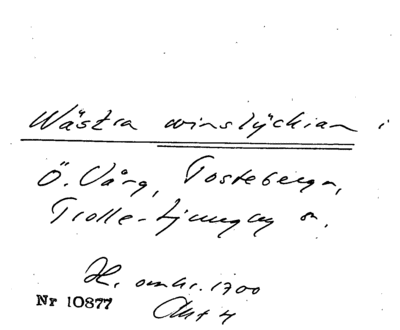 Wästra winslyckian i
Ö. Vång, Tosteberga,
Trolle-Ljungby sn.
H. omkr. 1700
Nr 10877 Akt 4